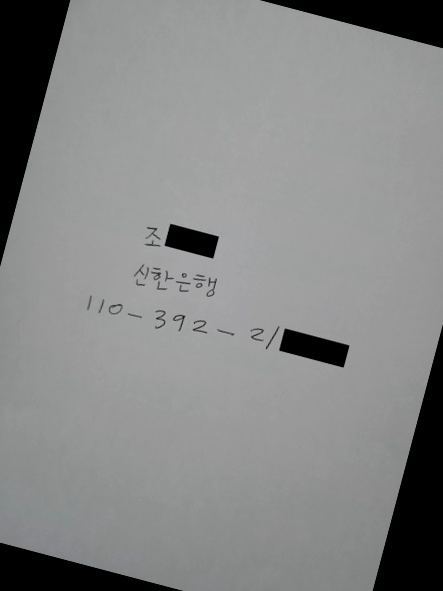 조
신한은행
110-392-21